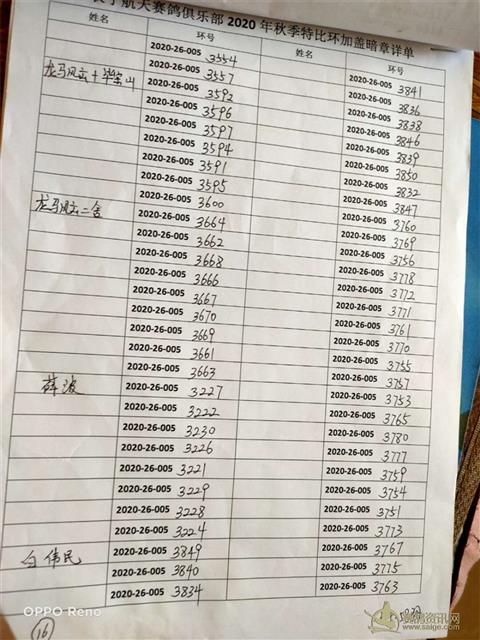 航天赛鸽俱乐部2020年秋季特比环加盖暗章详单
姓名 环号 姓名 环号
2020-26-005 3554
龙马风云+毕宝山 2020-26-005 3557 2020-26-005 3841
2020-26-005 3592 2020-26-005 3836
2020-26-005 3596 2020-26-005 3838
2020-26-005 3597 2020-26-005 3846
2020-26-005 3594 2020-26-005 3839
2020-26-005 3591 2020-26-005 3850
2020-26-005 3595 2020-26-005 3832
龙马风云二舍 2020-26-005 3600 2020-26-005 3847
2020-26-005 3664 2020-26-005 3760
2020-26-005 3662 2020-26-005 3769
2020-26-005 3668 2020-26-005 3756
2020-26-005 3666 2020-26-005 3778
2020-26-005 3667 2020-26-005 3772
2020-26-005 3670 2020-26-005 3771
2020-26-005 3669 2020-26-005 3761
2020-26-005 3661 2020-26-005 3770
2020-26-005 3663 2020-26-005 3755
薛波 2020-26-005 3227 2020-26-005 3757
2020-26-005 3222 2020-26-005 3753
2020-26-005 3230 2020-26-005 3765
2020-26-005 3226 2020-26-005 3780
2020-26-005 3221 2020-26-005 3777
2020-26-005 3229 2020-26-005 3759
2020-26-005 3228 2020-26-005 3754
2020-26-005 3224 2020-26-005 3751
伟民 2020-26-005 3849 2020-26-005 3773
2020-26-005 3840 2020-26-005 3767
2020-26-005 3834 2020-26-005 3775
2020-26-005 3763
16
OPPO Reno
赛鸽资讯网
www.saige.com